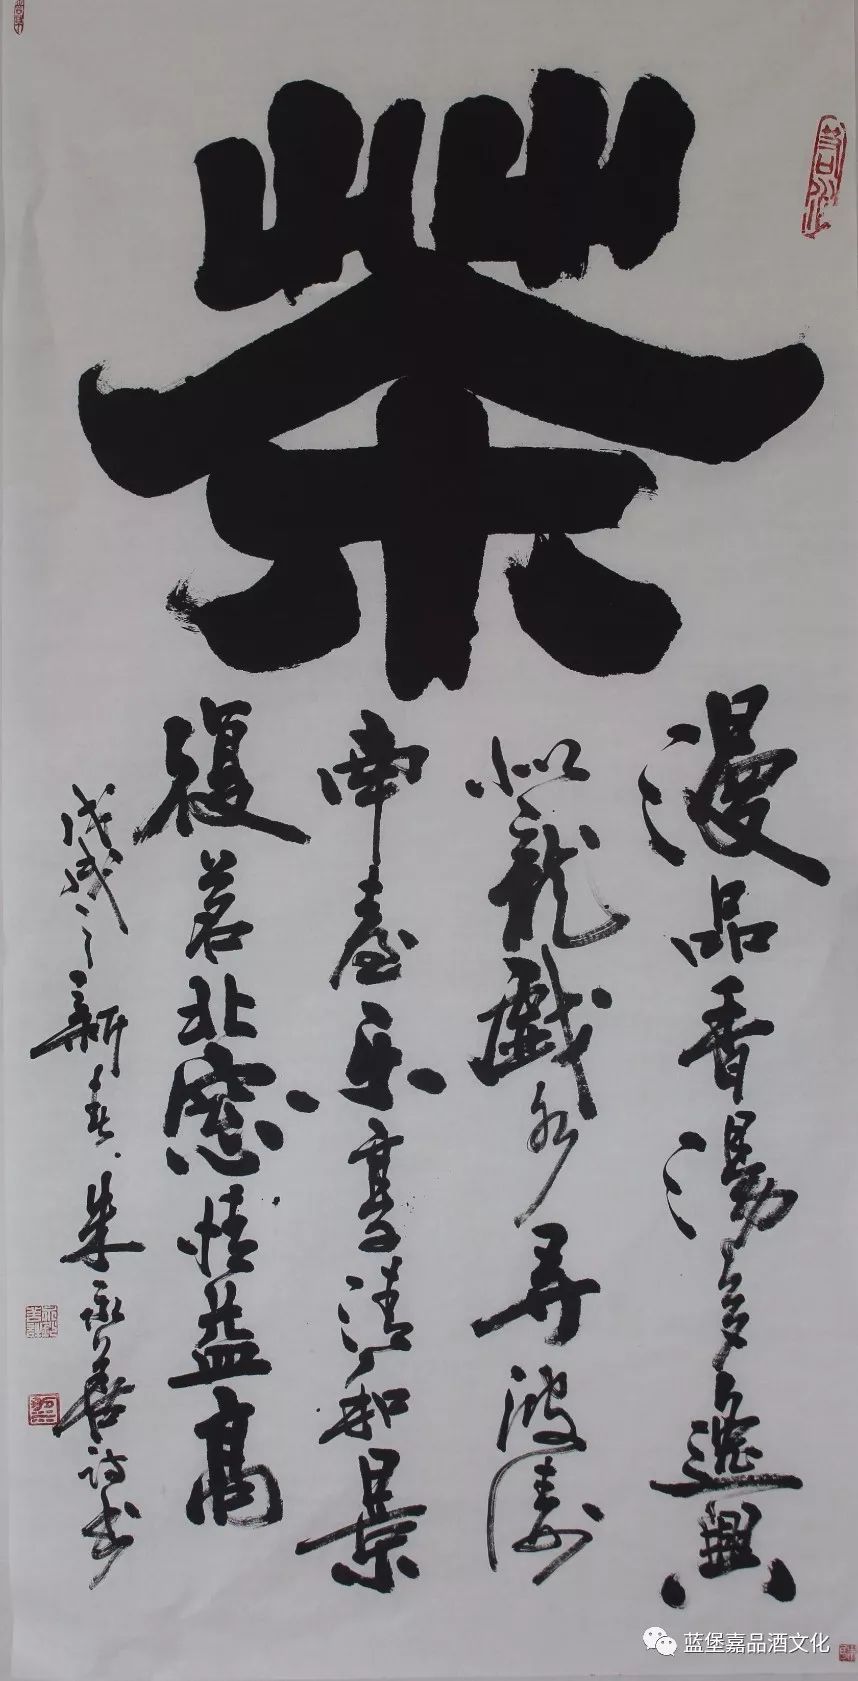 茶
漫品香湯多逸興
似龍戲水弄波濤
南臺乐享清和景
復茗北窓情益高
戊戌之新春朱永善詩书
蓝堡嘉品酒文化